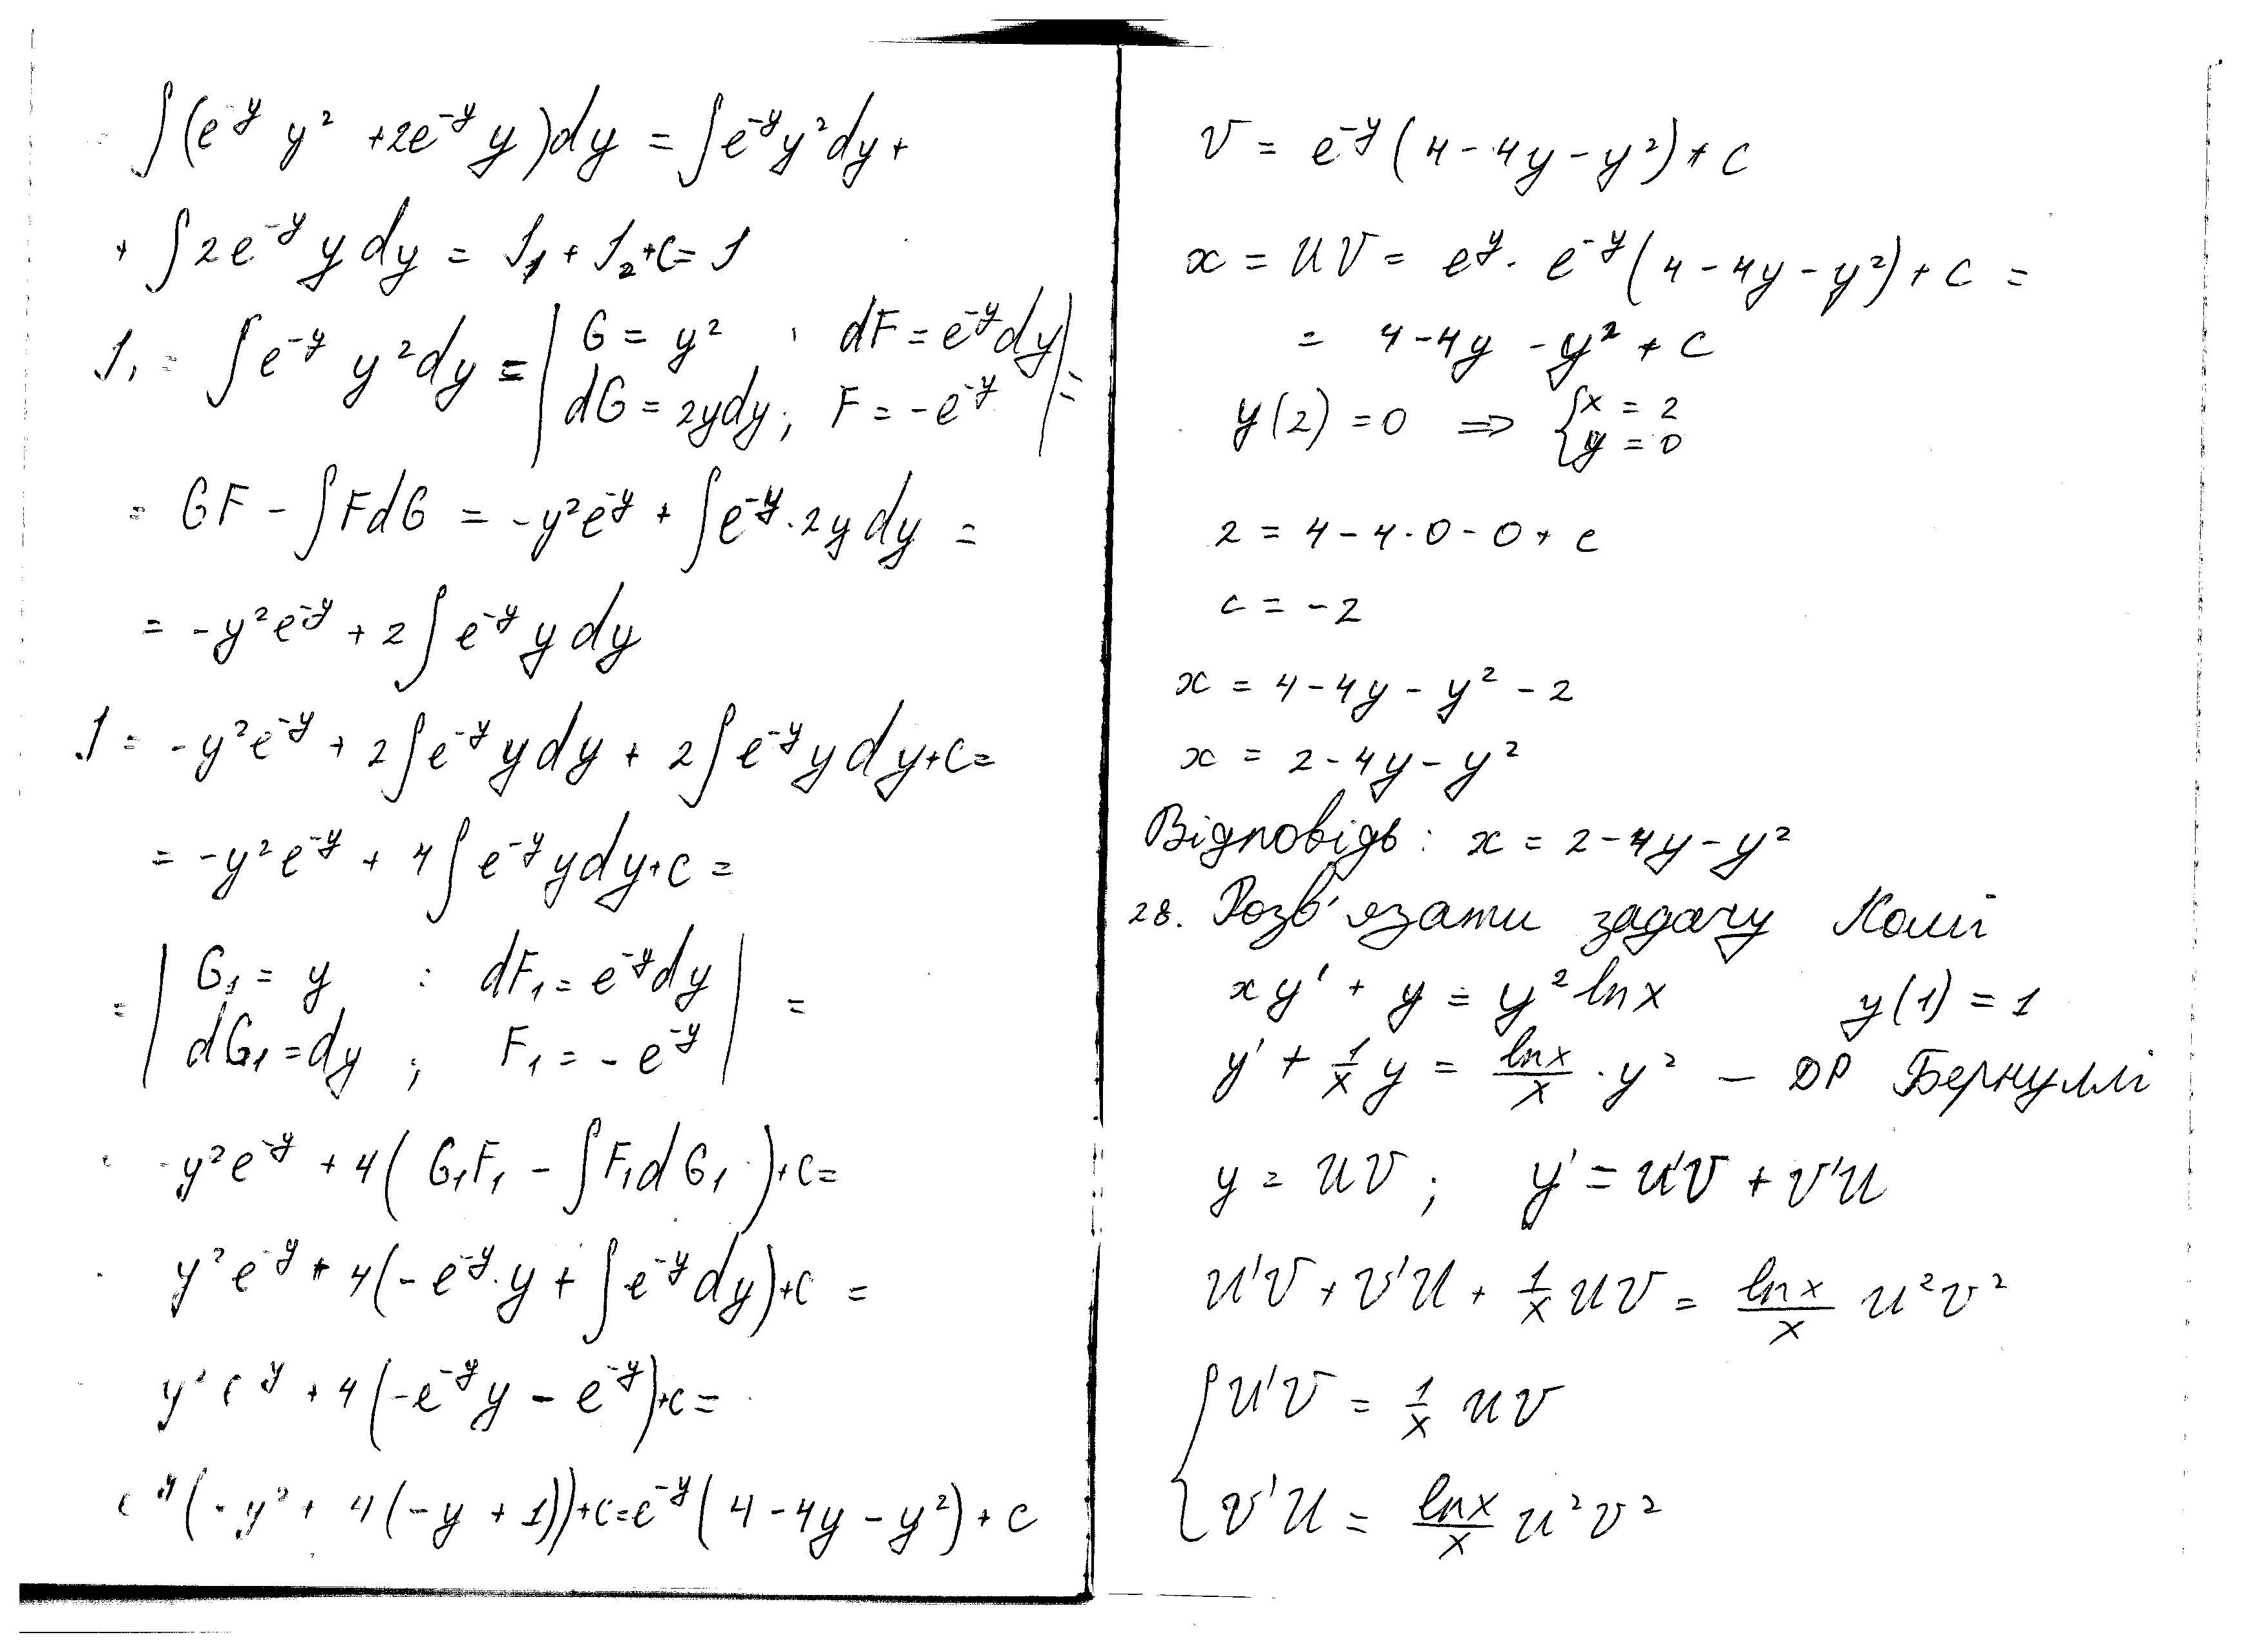 ∫(e^-y y² + 2e^-y y)dy = ∫e^-y y²dy +
+ ∫2e^-y y dy = J₁ + J₂ + C = J
J₁ = ∫e^-y y²dy = | G = y² ; dF = e^-y dy | =
| dG = 2ydy; F = -e^-y |
= GF - ∫FdG = -y²e^-y + ∫e^-y · 2y dy =
= -y²e^-y + 2∫e^-y y dy
J = -y²e^-y + 2∫e^-y y dy + 2∫e^-y y dy + C =
= -y²e^-y + 4∫e^-y y dy + C =
= | G₁ = y ; dF₁ = e^-y dy | =
| dG₁ = dy ; F₁ = -e^-y |
-y²e^-y + 4(G₁F₁ - ∫F₁dG₁) + C =
y²e^-y + 4(-e^-y · y + ∫e^-y dy) + C =
y² e^-y + 4(-e^-y y - e^-y) + C =
e^-y(-y² + 4(-y + 1)) + C = e^-y(4 - 4y - y²) + C
V = e^-y(4 - 4y - y²) + C
x = UV = e^y · e^-y(4 - 4y - y²) + C =
= 4 - 4y - y² + C
y(2) = 0 ⇒ { x = 2
y = 0
2 = 4 - 4·0 - 0 + C
C = -2
x = 4 - 4y - y² - 2
x = 2 - 4y - y²
Відповідь: x = 2 - 4y - y²
28. Розв'язати задачу Коші
xy' + y = y² ln x y(1) = 1
y' + 1/x y = ln x/x · y² — ДР Бернуллі
y = UV ; y' = U'V + V'U
U'V + V'U + 1/x UV = ln x/x U²V²
{ U'V = 1/x UV
V'U = ln x/x U²V²